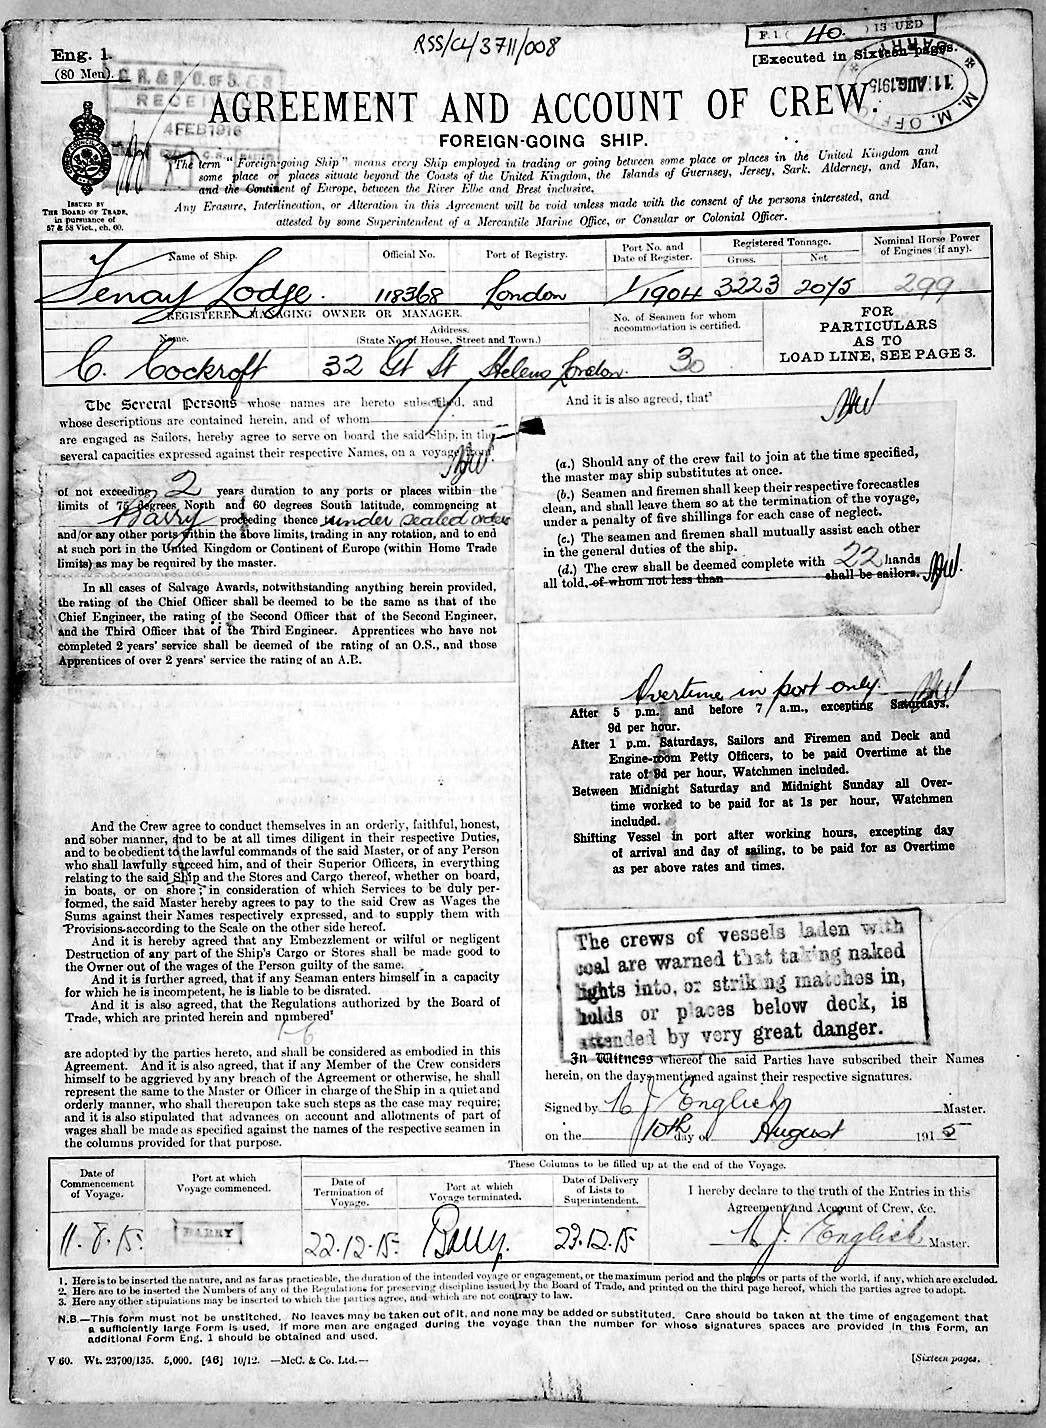 RSS/CL/3711/008
Eng. 1.
(80 Men).
F.1 ( 40. ) ISSUED
[Executed in Sixteen pages.
BARRY
11 AUG 1915
M. M. OFFICE
G. R. & R. O. OF S. & S.
RECEIVED
4 FEB 1916
AGREEMENT AND ACCOUNT OF CREW.
FOREIGN-GOING SHIP.
The term "Foreign-going Ship" means every Ship employed in trading or going between some place or places in the United Kingdom and
some place or places situate beyond the Coasts of the United Kingdom, the Islands of Guernsey, Jersey, Sark, Alderney, and Man,
and the Continent of Europe, between the River Elbe and Brest inclusive.
Any Erasure, Interlineation, or Alteration in this Agreement will be void unless made with the consent of the persons interested, and
attested by some Superintendent of a Mercantile Marine Office, or Consular or Colonial Officer.
ISSUED BY
THE BOARD OF TRADE,
in pursuance of
57 & 58 Vict., ch. 60.
Name of Ship. Official No. Port of Registry. Port No. and Date of Register. Registered Tonnage. Gross. Net Nominal Horse Power of Engines (if any).
Fenay Lodge. 118368 London 1/1904 3223 2075 299
REGISTERED MANAGING OWNER OR MANAGER.
Name. Address.
(State No. of House, Street and Town.)
No. of Seamen for whom
accommodation is certified.
C. Cockroft 32 Gt St Helens London. 30
FOR
PARTICULARS
AS TO
LOAD LINE, SEE PAGE 3.
The Several Persons whose names are hereto subscribed, and
whose descriptions are contained herein, and of whom
are engaged as Sailors, hereby agree to serve on board the said Ship, in the
several capacities expressed against their respective Names, on a voyage from¹
of not exceeding 2 years duration to any ports or places within the
limits of 75 degrees North and 60 degrees South latitude, commencing at
Barry proceeding thence under sealed orders
and/or any other ports within the above limits, trading in any rotation, and to end
at such port in the United Kingdom or Continent of Europe (within Home Trade
limits) as may be required by the master.
In all cases of Salvage Awards, notwithstanding anything herein provided,
the rating of the Chief Officer shall be deemed to be the same as that of the
Chief Engineer, the rating of the Second Officer that of the Second Engineer,
and the Third Officer that of the Third Engineer. Apprentices who have not
completed 2 years' service shall be deemed of the rating of an O.S., and those
Apprentices of over 2 years' service the rating of an A.B.
And the Crew agree to conduct themselves in an orderly, faithful, honest,
and sober manner, and to be at all times diligent in their respective Duties,
and to be obedient to the lawful commands of the said Master, or of any Person
who shall lawfully succeed him, and of their Superior Officers, in everything
relating to the said Ship and the Stores and Cargo thereof, whether on board,
in boats, or on shore; in consideration of which Services to be duly per-
formed, the said Master hereby agrees to pay to the said Crew as Wages the
Sums against their Names respectively expressed, and to supply them with
Provisions according to the Scale on the other side hereof.
And it is hereby agreed that any Embezzlement or wilful or negligent
Destruction of any part of the Ship's Cargo or Stores shall be made good to
the Owner out of the wages of the Person guilty of the same.
And it is further agreed, that if any Seaman enters himself in a capacity
for which he is incompetent, he is liable to be disrated.
And it is also agreed, that the Regulations authorized by the Board of
Trade, which are printed herein and numbered²
1-6
are adopted by the parties hereto, and shall be considered as embodied in this
Agreement. And it is also agreed, that if any Member of the Crew considers
himself to be aggrieved by any breach of the Agreement or otherwise, he shall
represent the same to the Master or Officer in charge of the Ship in a quiet and
orderly manner, who shall thereupon take such steps as the case may require;
and it is also stipulated that advances on account and allotments of part of
wages shall be made as specified against the names of the respective seamen in
the columns provided for that purpose.
And it is also agreed, that³
(a.) Should any of the crew fail to join at the time specified,
the master may ship substitutes at once.
(b.) Seamen and firemen shall keep their respective forecastles
clean, and shall leave them so at the termination of the voyage,
under a penalty of five shillings for each case of neglect.
(c.) The seamen and firemen shall mutually assist each other
in the general duties of the ship.
(d.) The crew shall be deemed complete with 22 hands
all told, of whom not less than shall be sailors.
Overtime in port only.
After 5 p.m. and before 7 a.m., excepting Saturdays,
9d per hour.
After 1 p.m. Saturdays, Sailors and Firemen and Deck and
Engine-room Petty Officers, to be paid Overtime at the
rate of 9d per hour, Watchmen included.
Between Midnight Saturday and Midnight Sunday all Over-
time worked to be paid for at 1s per hour, Watchmen
included.
Shifting Vessel in port after working hours, excepting day
of arrival and day of sailing, to be paid for as Overtime
as per above rates and times.
The crews of vessels laden with
coal are warned that taking naked
lights into, or striking matches in,
holds or places below deck, is
attended by very great danger.
In Witness whereof the said Parties have subscribed their Names
herein, on the days mentioned against their respective signatures.
Signed by N J English Master.
on the 10th day of August 1915
These Columns to be filled up at the end of the Voyage.
Date of Commencement of Voyage. Port at which Voyage commenced. Date of Termination of Voyage. Port at which Voyage terminated. Date of Delivery of Lists to Superintendent.
I hereby declare to the truth of the Entries in this
Agreement and Account of Crew, &c.
11.8.15. BARRY 22.12.15 Barry. 23.12.15 N J. English Master.
1. Here is to be inserted the nature, and as far as practicable, the duration of the intended voyage or engagement, or the maximum period and the places or parts of the world, if any, which are excluded.
2. Here are to be inserted the Numbers of any of the Regulations for preserving discipline issued by the Board of Trade, and printed on the third page hereof, which the parties agree to adopt.
3. Here any other stipulations may be inserted to which the parties agree, and which are not contrary to law.
N.B.—This form must not be unstitched. No leaves may be taken out of it, and none may be added or substituted. Care should be taken at the time of engagement that
a sufficiently large Form is used. If more men are engaged during the voyage than the number for whose signatures spaces are provided in this Form, an
additional Form Eng. 1 should be obtained and used.
V 60. Wt. 23700/135. 5,000. [46] 10/12. —McC. & Co. Ltd.—
[Sixteen pages.